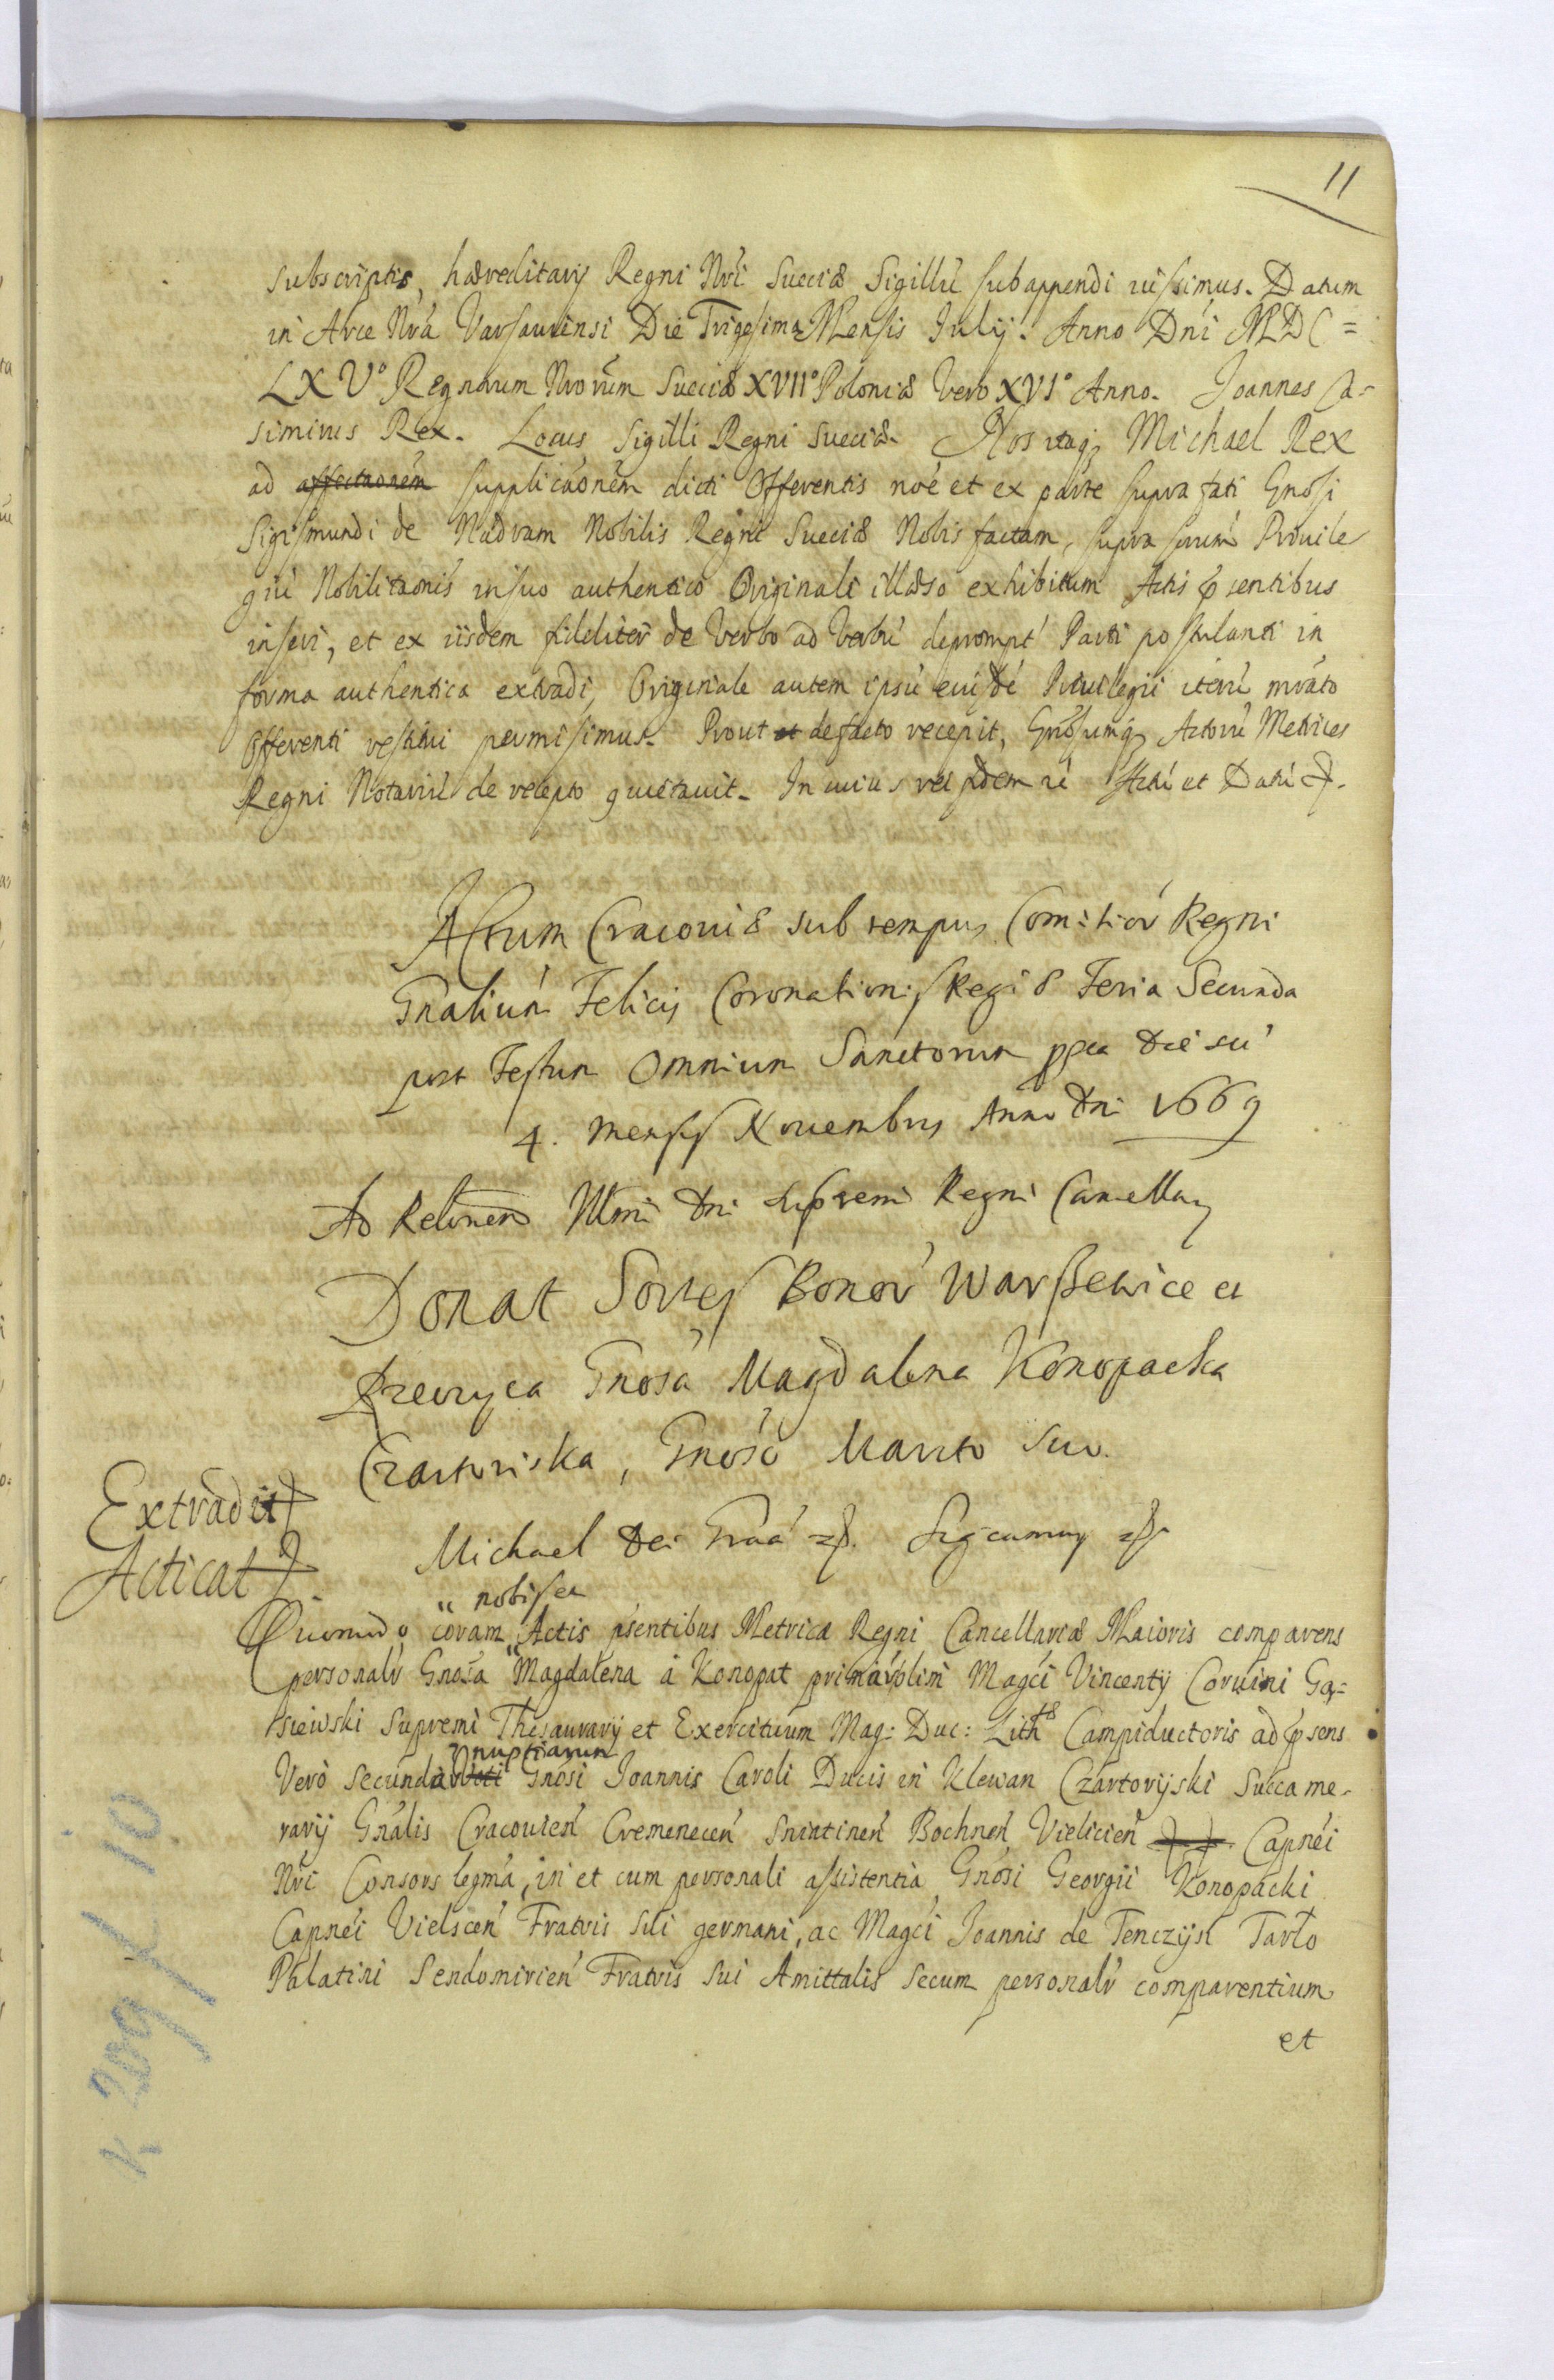 11
subscriptis, hæreditarij Regni Nri Sueciæ Sigillū subappendi iussimus. Datum
in Arce Nrâ Varsauiensi Die Trigesima Mensis Julij. Anno Dni MDC=
LXVº Regnorum Nrorum Sueciæ XVIIº Poloniæ Vero XVIº Anno. Joannes Ca=
simirus Rex. Locus Sigilli Regni Sueciæ. Nos itaq, Michael Rex
ad affectaonem supplicaonem dicti Offerentis noe et ex parte supra fati Gnosi
Sigismundi de Nadram Nobilis Regni Sueciæ Nobis factam, supra insertum Priuile
giu Nobilitaonis in suo authentico Originali illæso exhibitum Actis psentibus
inseri, et ex iisdem fideliter de Verbo ad Verbu depromptu Parti postulanti in
forma authentica extradi, Originale autem ipsu eiusde Priuilegii iteru mrato
Offerenti restitui permisimus. Prout et defacto recepit, Gnosumq Actoru Metrices
Regni Notariu de recepto quietauit. In cuius rei fidem Actu et Datu
Actum Cracouiæ sub tempus Comitior Regni
Gnaliun Felicis Coronationis Regiæ Feria Secunda
post Festum Omnium Sanctorum pxa die sci
4. mensis Nouembris Anno Dni 1669
Ad Relonem Illmi Dni Supremi Regni Cancellarij
Donat Sortes Bonor Warszewice et
Przewyca Gnosa Magdalena Konopacka
Czartoriska, Gnoso Marito Suo.
Extradit
Acticat
Michael Dei Graa Sigcamuy
" nobis et
Quomodo coram " Actis psentibus Metrica Regni Cancellariæ Maioris comparens
personalr Gnosa Magdalena à Konopat primar olim Magci Vincentij Coruini Gą=
siewski Supremi Thesaurarij et Exercituum Mag: Duc: Lith Campiductoris ad psens
nuptiarum
Verò Secundar Gnosi Joannis Caroli Ducis in Klewan Czartoryski Succame-
rarij Gnalis Cracouien Cremenecen Sniatinen Bochnen Vielicien Capnei
Nri Consors legma, in et cum personali assistentia Gnosi Georgii Konopacki
Capnei Vielscen Fratris sui germani, ac Magci Joannis de Tenczyn Tarło
Palatini Sendomirien Fratris sui Amittalis secum personalr comparentium
et
K 209 f 10